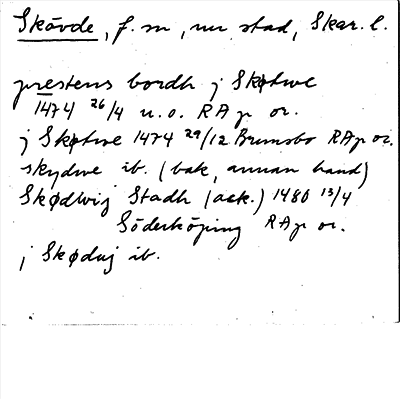 Skövde, f. sn, nu stad, Skar. l.
prestens bordh j Skøtwe
1474 26/4 u.o. RAp or.
j Skøtwe 1474 29/12 Brunsbo RAp or.
skydwe ib. (bak, annan hand)
Skødwij Stadh (ack.) 1480 13/4
Söderköping RAp or.
j Skødwj ib.